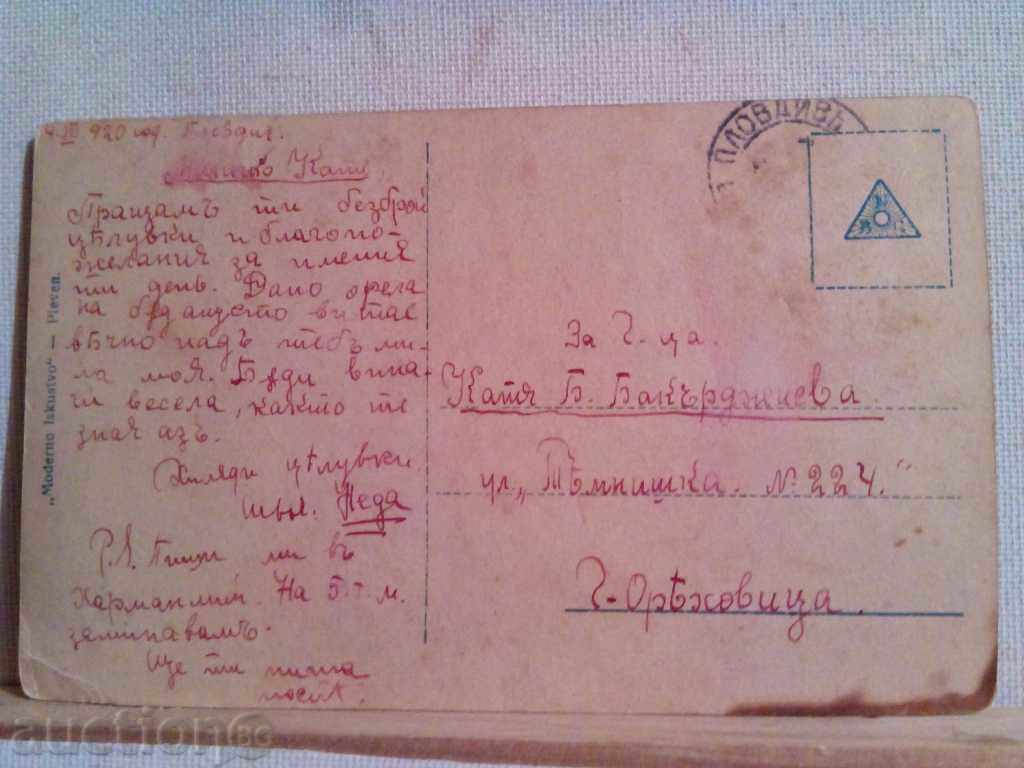 III 920 год. Пловдив.
Кати
Пращамъ ти безброй
цѣлувки и благопо-
желания за имения
ти день. Дано орела
на вѣчно надъ тебъ ми-
ла моя. Бѫди вина-
ги весела, както те
зная азъ.
Хиляди цѣлувки.
Неда
P.S. Пиши ми въ
Харманлий. На 5.т.м.
заминавамъ.
Ще ти пиша
„Moderno Iskustvo" — Pleven.
ПЛОВДИВЪ
За Г-ца.
Катя Б. Бакърджиева.
ул. „Тѣмнишка. № 224."
Г-Орѣховица.
auction BG